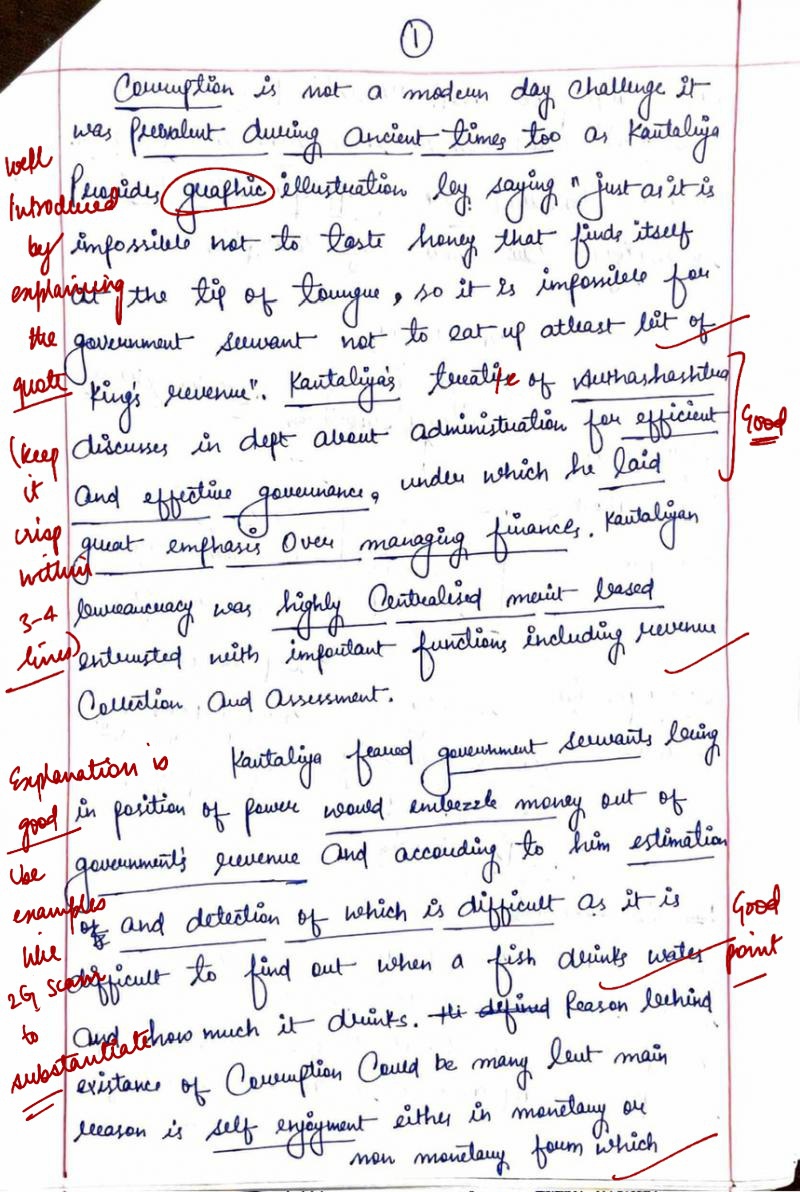 1
Corruption is not a modern day challenge it
was prevalent during ancient times too as Kautaliya
Provides graphic illustration by saying "just as it is
impossible not to taste honey that finds itself
at the tip of toungue, so it is impossible for
government servant not to eat up atleast bit of
King's revenue". Kautaliya's treatise of Authashashtra
discusses in dept about administration for efficient
And effective governance, under which he laid
great emphasis Over managing finances. Kautaliyan
bureaucracy was highly Centralised merit based
entrusted with important functions including revenue
Collection And Assessment.
Kautaliya feared government servants being
in position of power would embezzle money out of
government's revenue And according to him estimation
of and detection of which is difficult as it is
difficult to find out when a fish drinks water
And how much it drinks. Reason behind
existance of Corruption Could be many but main
reason is self enjoyment either in monetary or
non monetary form which
well
Introduced
by
explaining
the
quote
(keep
it
crisp
within
3-4
lines)
Good
Explanation is
good
Use
examples
like
2G scam
to
substantiate
Good
point